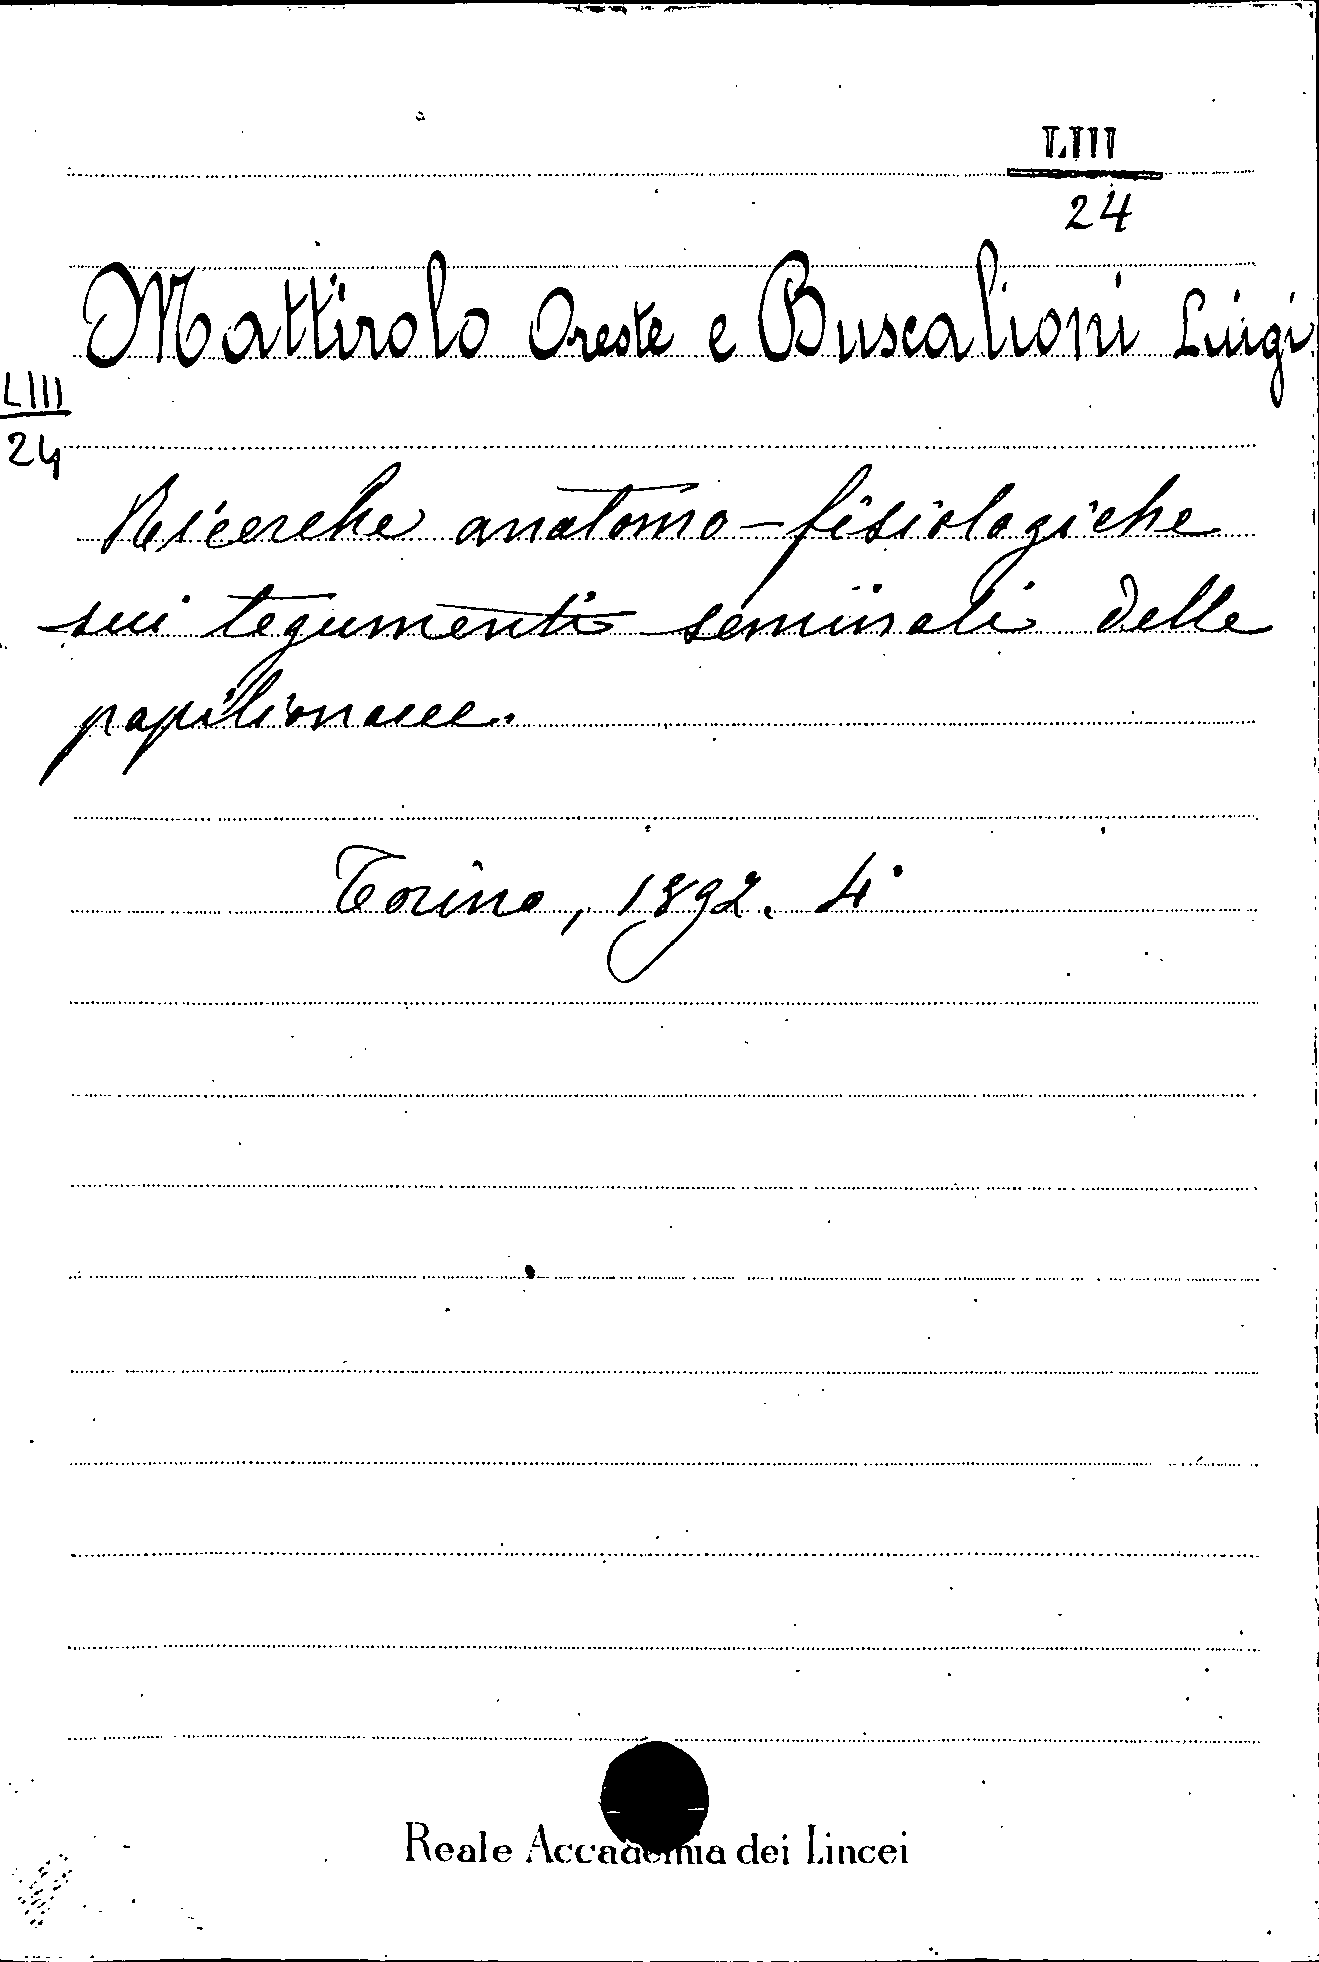 LIII
24
Mattirolo Oreste e Buscalioni Luigi
LIII
24
Ricerche anatomo-fisiologiche
sui tegumenti seminali delle
papilionacee.
Torino, 1892. 4°
Reale Accademia dei Lincei